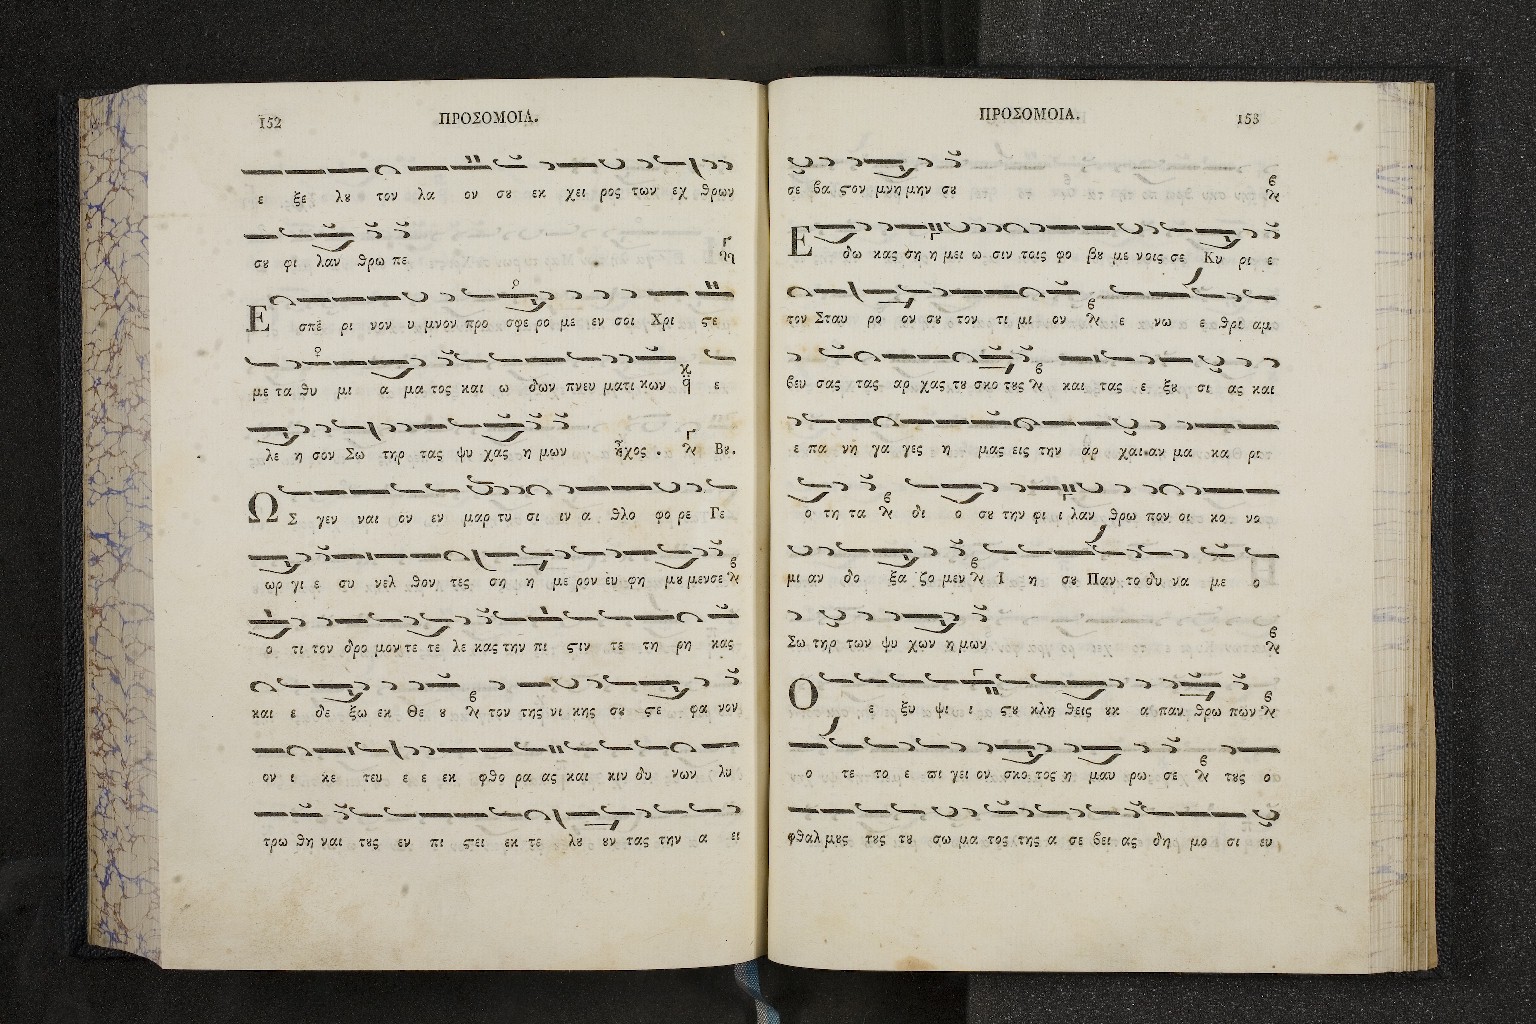 152
ΠΡΟΣΟΜΟΙΑ.
ε ξε λȣ τον λα ον σȣ εκ χει ρος των εχ θρων
σȣ φι λαν θρω πε
Ε σπε ρι νον υ μνον προ σφε ρο με εν σοι Χρι ϛε
με τα θυ μι α μα τος και ω δων πνευ ματι κων ε
λε η σον Σω τηρ τας ψυ χας η μων ἦχος . Βȣ.
Ω Σ γεν ναι ον εν μαρ τυ σι ιν α θλο φο ρε Γε
ωρ γι ε συ νελ θον τες ση η με ρον ευ φη μȣ μενσε
ο τι τον δρο μον τε τε λε κας την πι ϛιν τε τη ρη κας
και ε δε ξω εκ Θε ȣ τον της νι κης σȣ ϛε φα νον
ον ι κε τευ ε ε εκ φθο ρα ας και κιν δυ νων λυ
τρω θη ναι τȣς εν πι ϛει εκ τε λȣ ȣν τας την α ει
ΠΡΟΣΟΜΟΙΑ.
153
σε βα ϛον μνη μην σȣ
Ε δω κας ση η μει ω σιν τοις φο βȣ με νοις σε Κυ ρι ε
τον Σταυ ρο ον σȣ τον τι μι ον ε νω ε θρι αμ
βευ σας τας αρ χας τȣ σκο τȣς και τας ε ξȣ σι ας και
ε πα νη γα γες η μας εις την αρ χαι αν μα κα ρι
ο τη τα δι ο σȣ την φι ι λαν θρω πον οι κο νο
μι αν δο ξα ζο μεν Ι η σȣ Παν το δυ να με ο
Σω τηρ των ψυ χων η μων
Ο ε ξυ ψι ι ϛȣ κλη θεις ȣκ α παν θρω πων
ο τε το ε πι γει ον σκο τος η μαυ ρω σε τȣς ο
φθαλ μȣς τȣς τȣ σω μα τος της α σε βει ας δη μο σι ευ